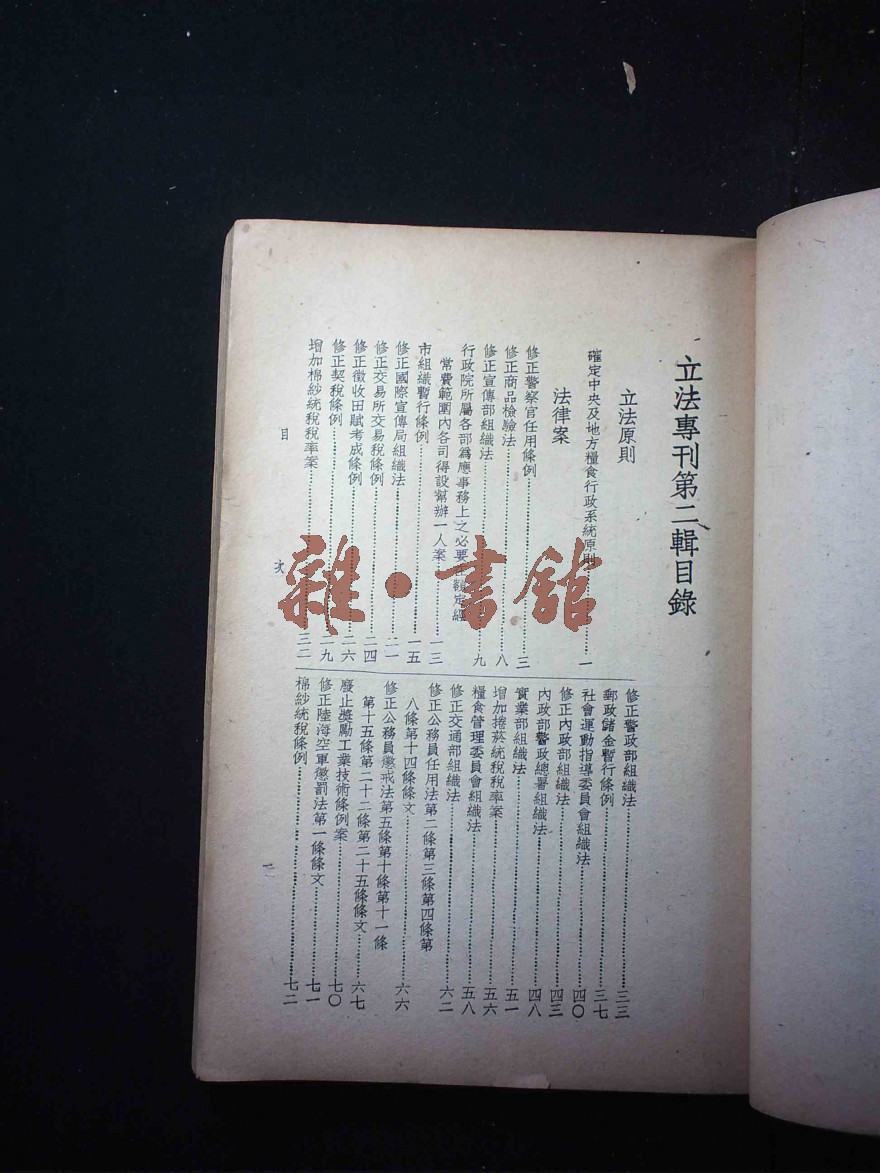 立法專刊第二輯目錄
立法原則
確定中央及地方糧食行政系統原則……一
法律案
修正警察官任用條例……三
修正商品檢驗法……八
修正宣傳部組織法……九
行政院所屬各部為應事務上之必要
常費範圍內各司得設幫辦一人案……一三
市組織暫行條例……一五
修正國際宣傳局組織法……二一
修正交易所交易稅條例……二四
修正徵收田賦考成條例……二六
修正契稅條例……二九
增加棉紗統稅稅率案……三二
修正警政部組織法……三三
郵政儲金暫行條例……三七
社會運動指導委員會組織法……四〇
修正內政部組織法……四三
內政部警政總署組織法……四八
實業部組織法……五一
增加捲菸統稅稅率案……五六
糧食管理委員會組織法……五八
修正交通部組織法……六二
修正公務員任用法第二條第三條第四條第
八條第十四條條文……六六
修正公務員懲戒法第五條第十條第十一條
第十五條第二十二條第二十五條條文……六七
廢止獎勵工業技術條例案……七〇
修正陸海空軍懲罰法第一條條文……七一
棉紗統稅條例……七二
目 次
一
雜·書館